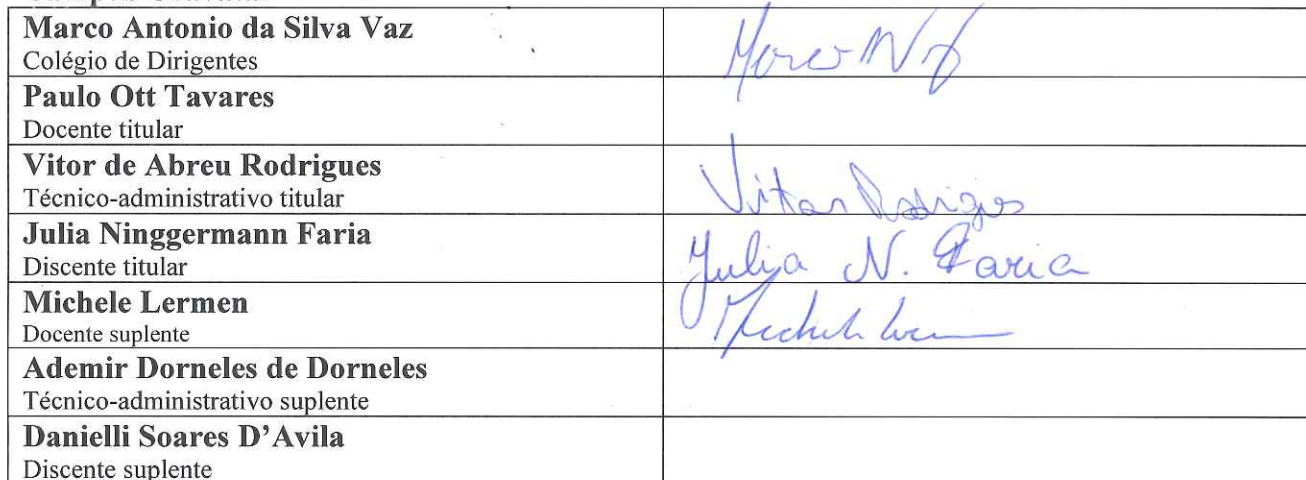 Marco Antonio da Silva Vaz
Colégio de Dirigentes
Paulo Ott Tavares
Docente titular
Vitor de Abreu Rodrigues
Técnico-administrativo titular
Vitor Rodrigues
Julia Ninggermann Faria
Discente titular
Julia N. Faria
Michele Lermen
Docente suplente
Ademir Dorneles de Dorneles
Técnico-administrativo suplente
Danielli Soares D’Avila
Discente suplente